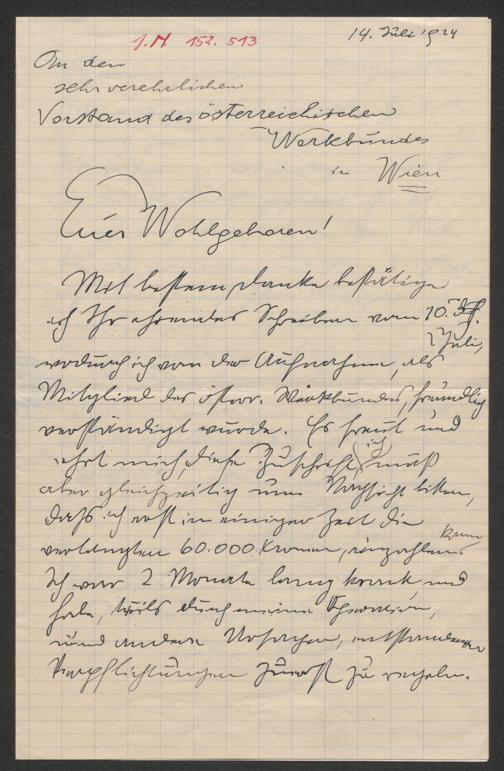 J.N. 152.513
14. Juli 1924
An den
sehr verehrlichen
Vorstand des österreichischen
Werkbundes
in Wien
Euer Wohlgeboren!
Mit bestem Danke bestätige
ich Ihr ehrendes Schreiben vom 10. d.
Juli,
wodurch ich von der Aufnahme, als
Mitglied des österr. Werkbundes, freundlich
verständigt wurde. Es freut und
ehrt mich diese Zuschrift, ich muß
aber gleichzeitig um Nachsicht bitten,
daß ich erst in einiger Zeit die
verlangten 60.000 Kronen, einzahlen kann
Ich war 2 Monate lang krank und
habe, teils durch meine Operation,
und andere Ursachen, entstandenen
Verpflichtungen zuerst zu regeln.